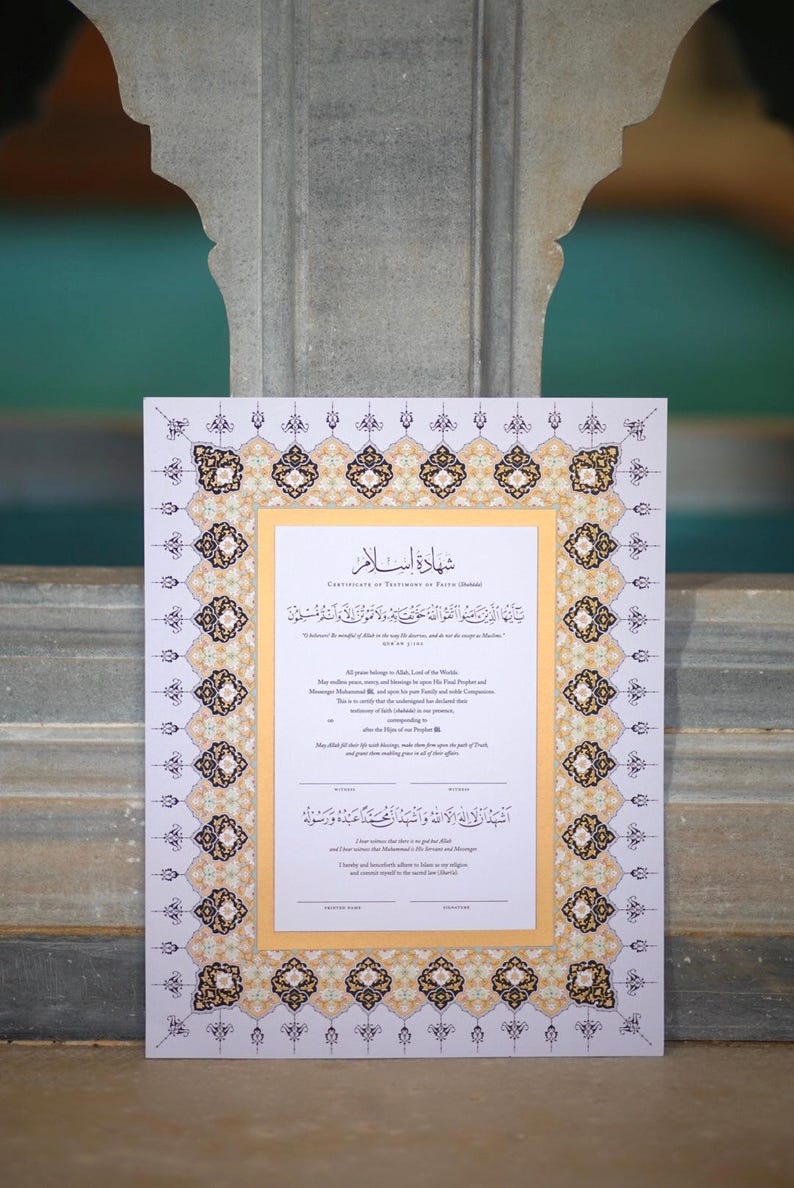 شهادة إسلام
Certificate of Testimony of Faith (Shahāda)
يَـٰٓأَيُّهَا ٱلَّذِينَ ءَامَنُوا۟ ٱتَّقُوا۟ ٱللَّهَ حَقَّ تُقَاتِهِۦ وَلَا تَمُوتُنَّ إِلَّا وَأَنتُم مُّسْلِمُونَ
"O believers! Be mindful of Allah in the way He deserves, and do not die except as Muslims."
QUR'AN 3:102
All praise belongs to Allah, Lord of the Worlds.
May endless peace, mercy, and blessings be upon His Final Prophet and
Messenger Muhammad ﷺ, and upon his pure Family and noble Companions.
This is to certify that the undersigned has declared their
testimony of faith (shahāda) in our presence,
on corresponding to
after the Hijra of our Prophet ﷺ
May Allah fill their life with blessings, make them firm upon the path of Truth,
and grant them enabling grace in all of their affairs.
WITNESS WITNESS
أَشْهَدُ أَنْ لَا إِلٰهَ إِلَّا اللهُ وَأَشْهَدُ أَنَّ مُحَمَّدًا عَبْدُهُ وَرَسُولُهُ
I bear witness that there is no god but Allah
and I bear witness that Muhammad is His Servant and Messenger.
I hereby and henceforth adhere to Islam as my religion
and commit myself to the sacred law (Sharīʿa).
PRINTED NAME SIGNATURE